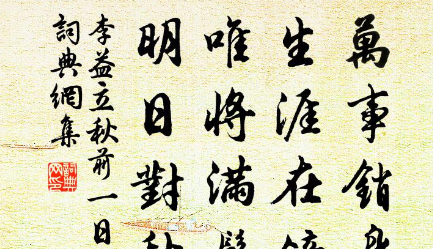 萬事銷
生涯在
唯將滿
明日對
李益立秋前一日
詞典網集